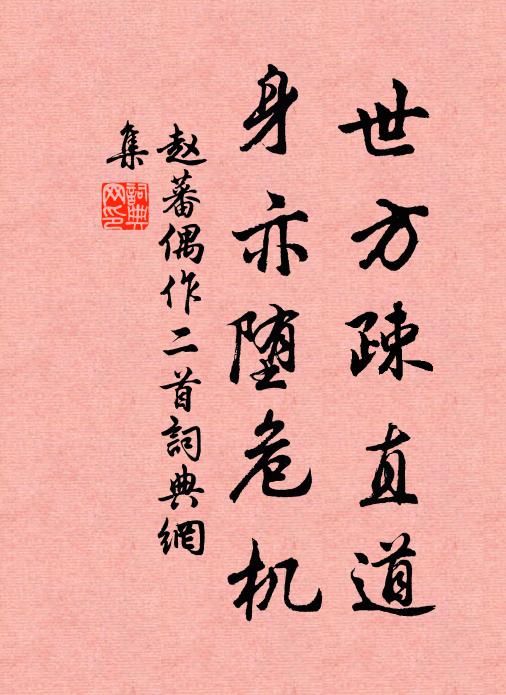 世方疎直道
身亦堕危机
赵蕃偶作二首詞典網
集
詞典
网印